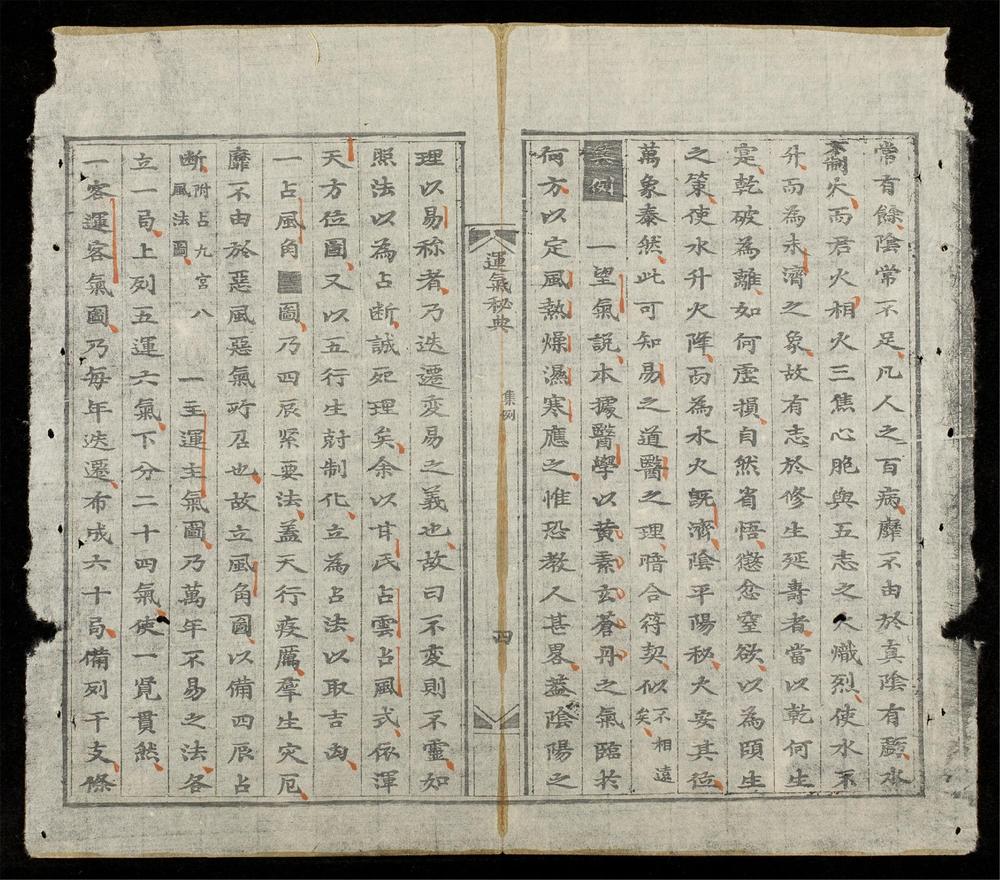 常有餘陰常不足凡人之百病靡不由於真陰有虧水
不制火而君火相火三焦心胞與五志之火熾烈使水不
升而為未濟之象故有志於修生延壽者當以乾何生
寔乾破為離如何虛損自然省悟懲忿窒欲以為頤生
之策使水升火降而為水火既濟陰平陽秘火安其位
萬象泰然此可知易之道醫之理暗合符契似不相遠矣
例 一望氣說本據醫學以黃素玄蒼丹之氣臨於
何方以定風熱燥濕寒應之惟恐教人甚畧蓋陰陽之
運氣秘典 集例 四
理以易称者乃迭遷変易之義也故曰不変則不靈如
照法以為占断誠死理矣余以甘氏占雲占風式依渾
天方位圖又以五行生尅制化立為占法以取吉凶
一占風角圖乃四辰紧要法蓋天行疫厲羣生灾厄
靡不由於惡風惡氣所召也故立風角圖以備四辰占
断附占九宮八風法圖 一主運主氣圖乃萬年不易之法各
立一局上列五運六氣下分二十四氣使一覧貫然
一客運客氣圖乃每年迭遷布成六十局備列干支條